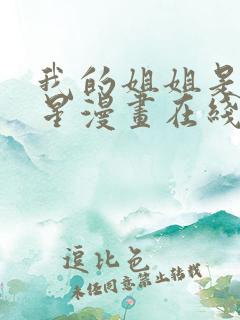 我的姐姐是
星漫畫在綫
逗比色
未经同意禁止转载